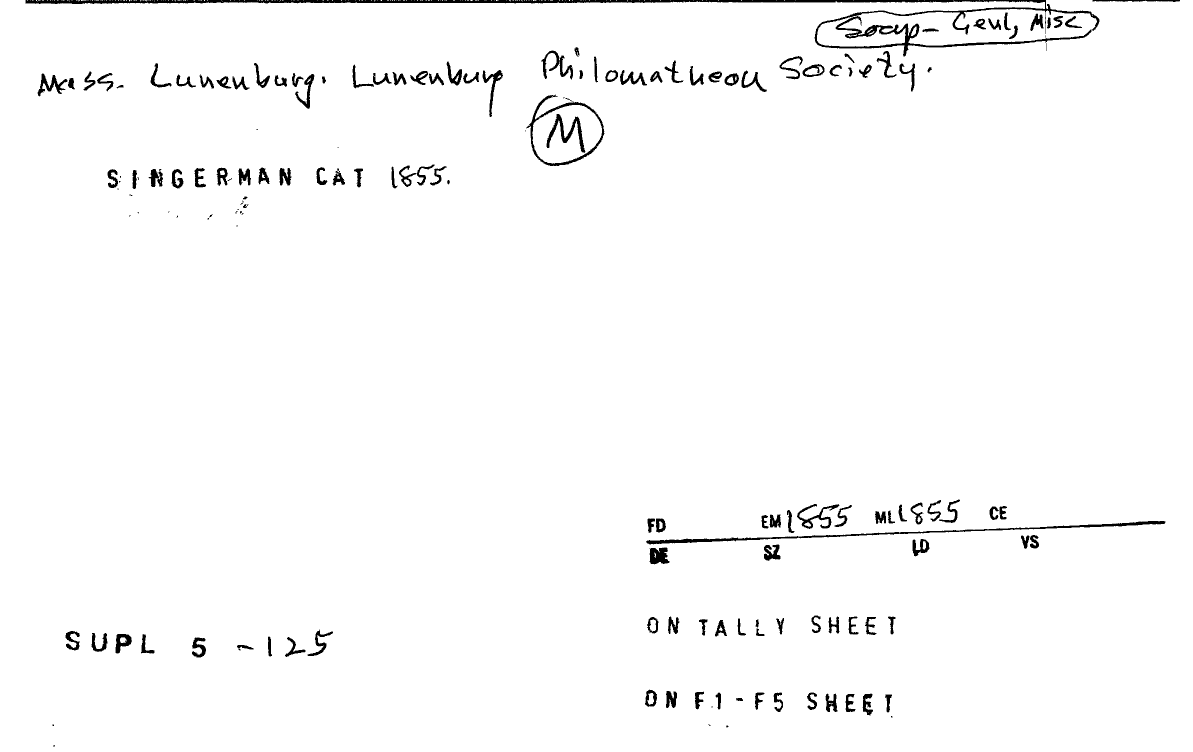 Socyp - Genl, Misc
Mass. Lunenburg. Lunenburg Philomatheon Society.
M
SINGERMAN CAT 1855.
FD EM 1855 ML 1855 CE
DE SZ LD VS
ON TALLY SHEET
SUPL 5 - 125
ON F1-F5 SHEET